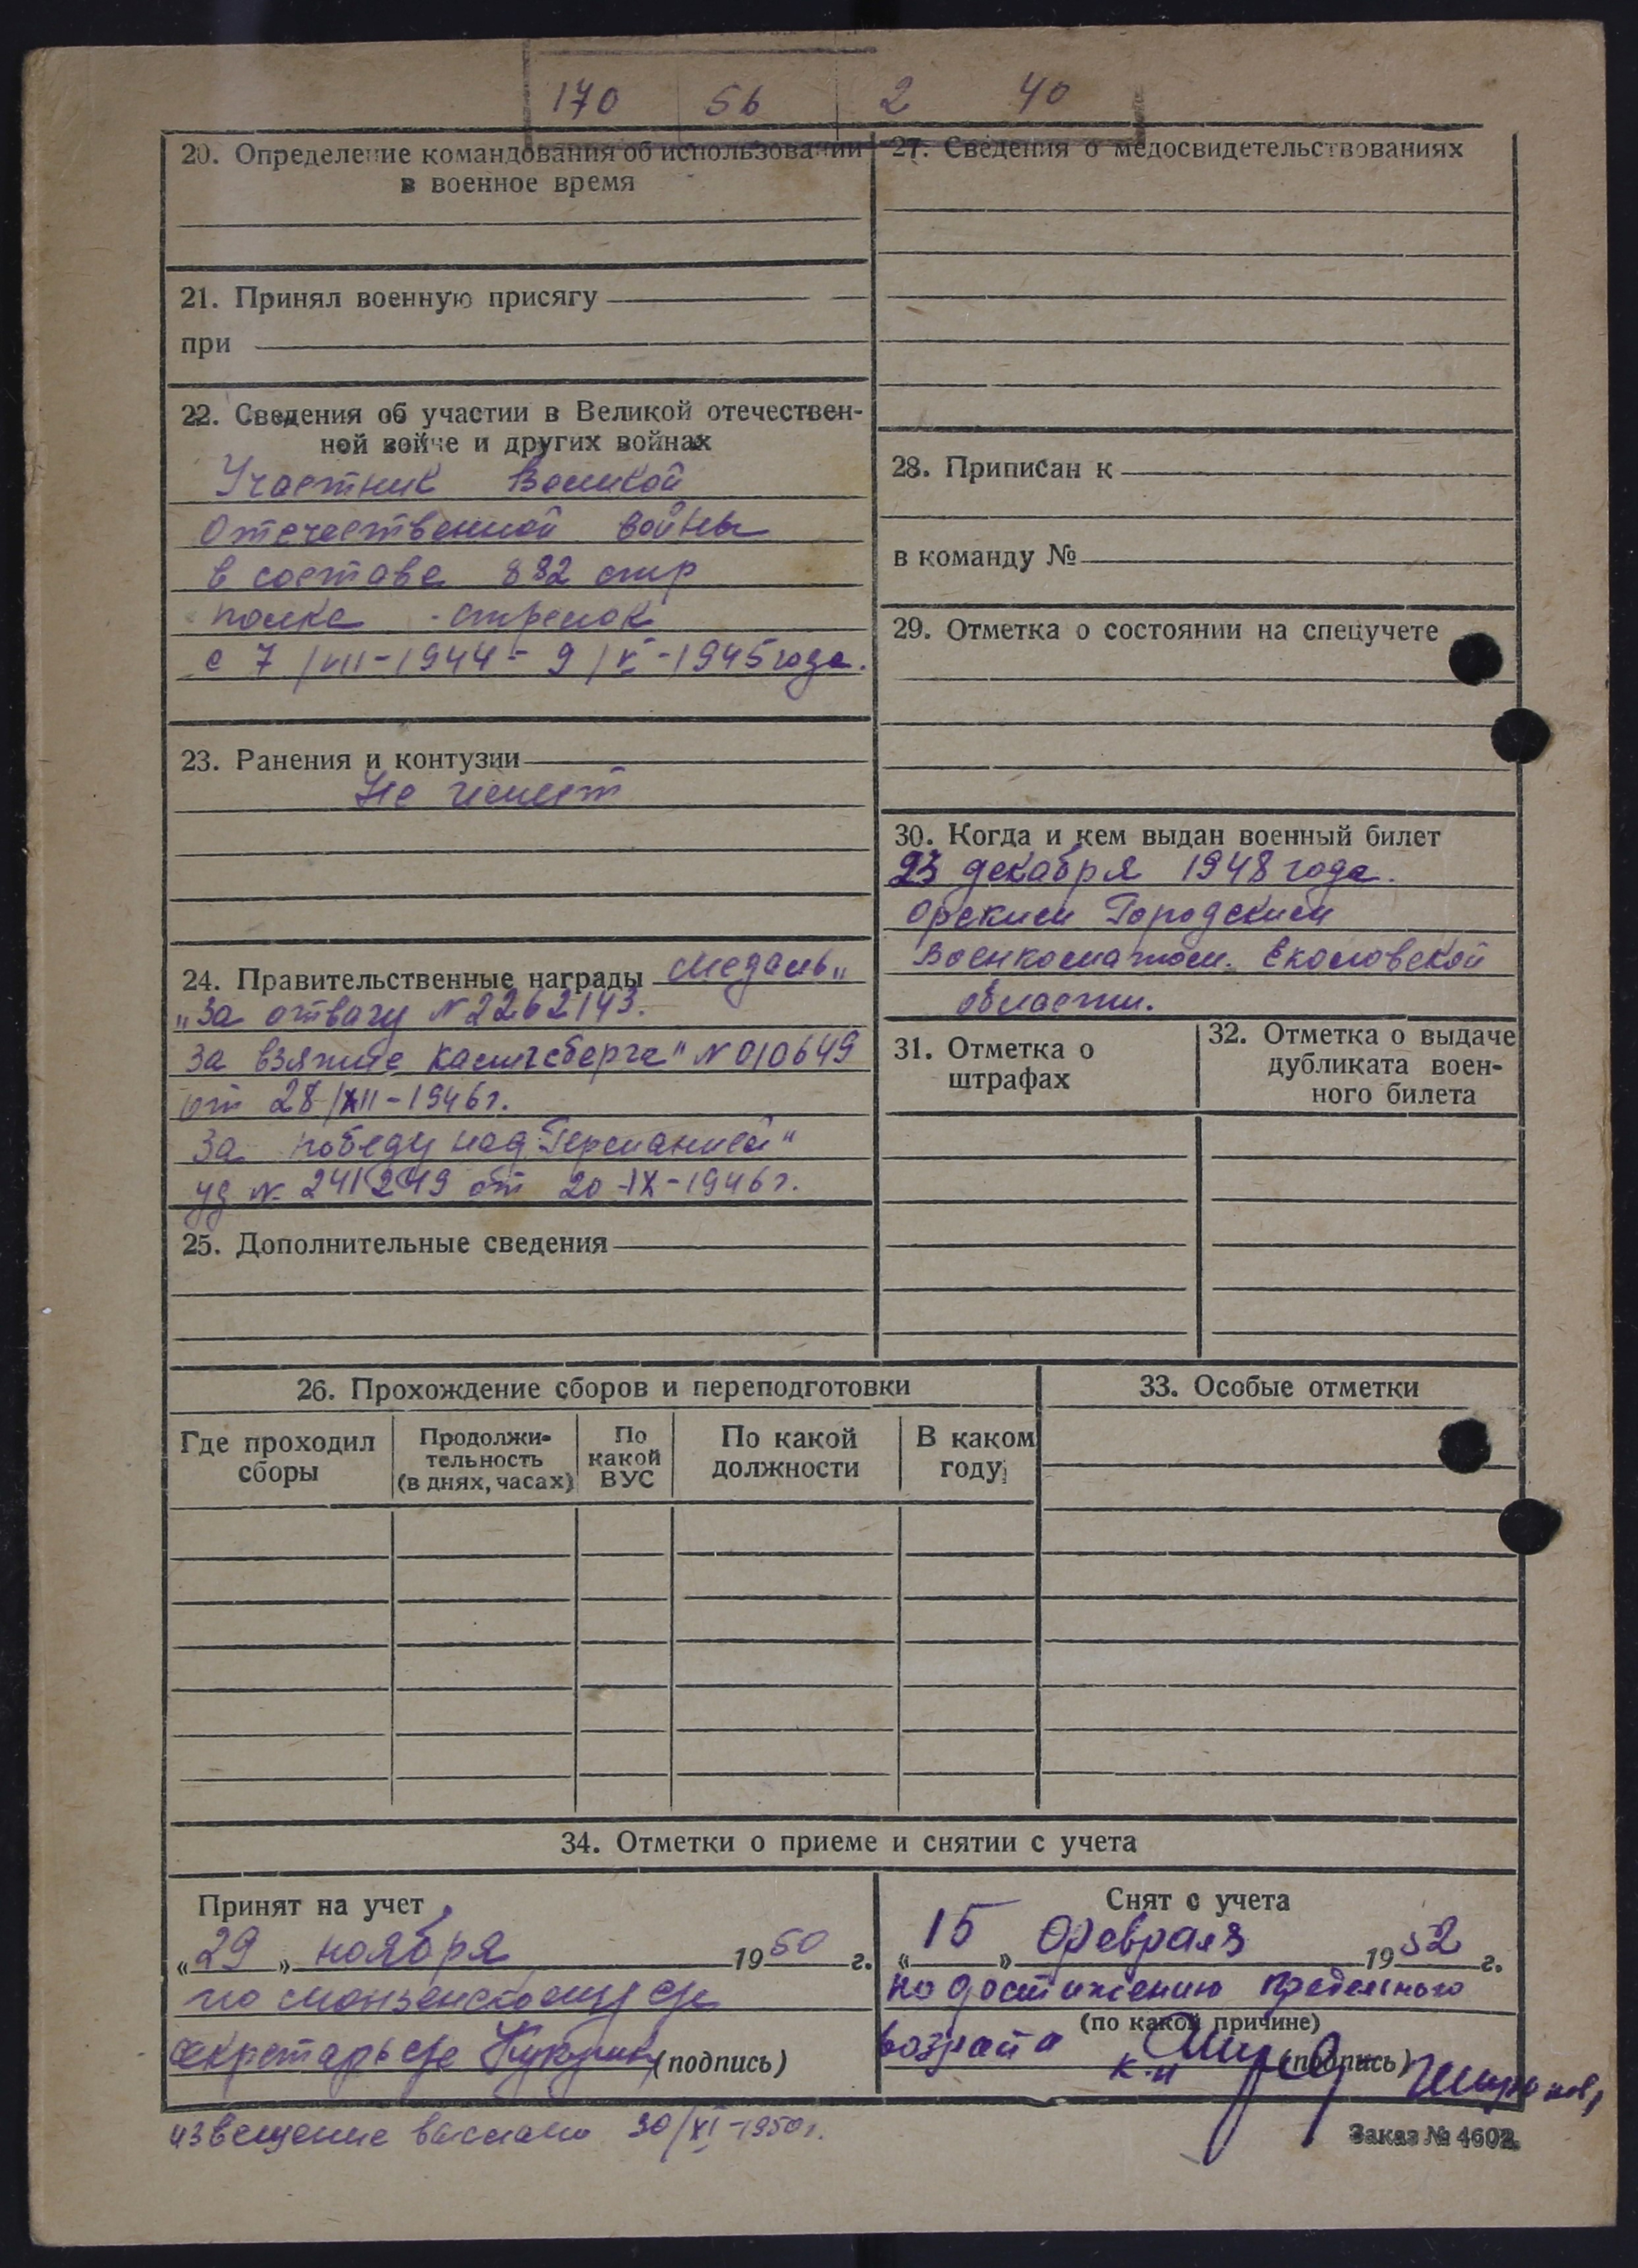 170 56 2 40
20. Определение командования об использовании
в военное время
21. Принял военную присягу
при
22. Сведения об участии в Великой отечествен-
ной войне и других войнах
Участник Великой
Отечественной войны
в составе 882 стр
полка - стрелок
с 7/VII-1944 - 9/V-1945 года.
23. Ранения и контузии
Не имеет
24. Правительственные награды Медаль „
„За отвагу N 2262143.
За взятие Кенигсберга" N 010649
от 28/XII-1946г.
За победу над Германией"
уд N 241249 от 20-IX-1946г.
25. Дополнительные сведения
27. Сведения о медосвидетельствованиях
28. Приписан к
в команду №
29. Отметка о состоянии на спецучете
30. Когда и кем выдан военный билет
23 декабря 1948 года.
Городским
Военкоматом.
области.
31. Отметка о
штрафах
32. Отметка о выдаче
дубликата воен-
ного билета
26. Прохождение сборов и переподготовки
Где проходил
сборы
Продолжи-
тельность
(в днях, часах)
По
какой
ВУС
По какой
должности
В каком
году
33. Особые отметки
34. Отметки о приеме и снятии с учета
Принят на учет
„29„ ноября 1950 г.
по
секретарь с/с (подпись)
Снят с учета
„15„ февраля 1952 г.
по достижению предельного
(по какой причине)
возраста
(подпись)
извещение выслано 30/XI-1950г.
Заказ № 4602.